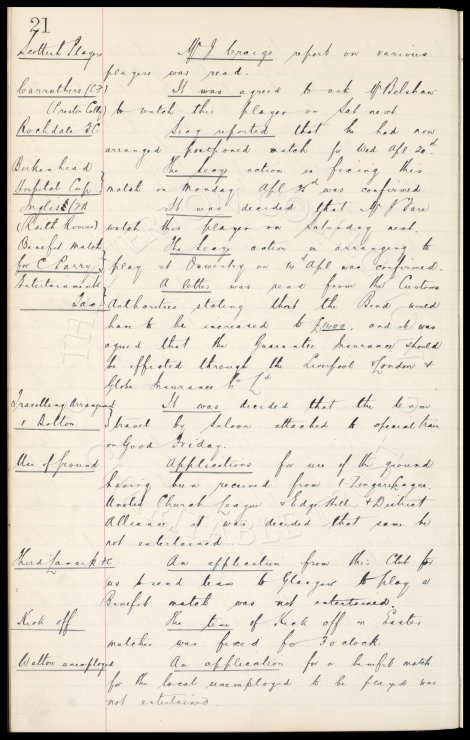 21
Scottish Players Mr J Craigs report on various
players was read.
Carruthers (CF) It was agreed to ask Mr Belshaw
to watch this player on Sat next
Rochdale FC Secy reported that he had now
arranged postponed match for Wed Apl 20th.
Birkenhead The Secys action in fixing this
Hospital Cup match on Monday Apl was confirmed
Inglis It was decided that Mr
(Raith Rovers) watch this player on Saturday next.
Benefit Match The Secys action in arranging to
for C Parry play at Oswestry on Apl was confirmed.
Entertainments A letter was read from the Customs
Tax Authorities stating that the Bond would
have to be increased to £1400. and it was
agreed that the Guarantee Insurance should
be effected through the Liverpool & London &
Globe Insurance Co Ld
Travelling Arrangements It was decided that the team
Bolton travel by saloon attached to special train
on Good Friday.
Use of Ground Applications for use of the ground
having been received from I. Zingari League,
United Church League & Edge Hill & District
Alliance it was decided that same be
not entertained
Third Lanark FC An application from this Club for
us to send team to Glasgow to play a
Benefit match was not entertained.
Kick off The time of Kick off in Easter
matches was fixed for 3 oclock.
Walton unemployed An application for a benefit match
for the local unemployed to be played was
not entertained.